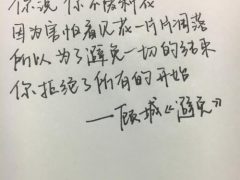 你说 你不愿种花
因为害怕看见花一片片凋落
所以 为了避免一切的结束
你拒绝了所有的开始
—顾城《避免》